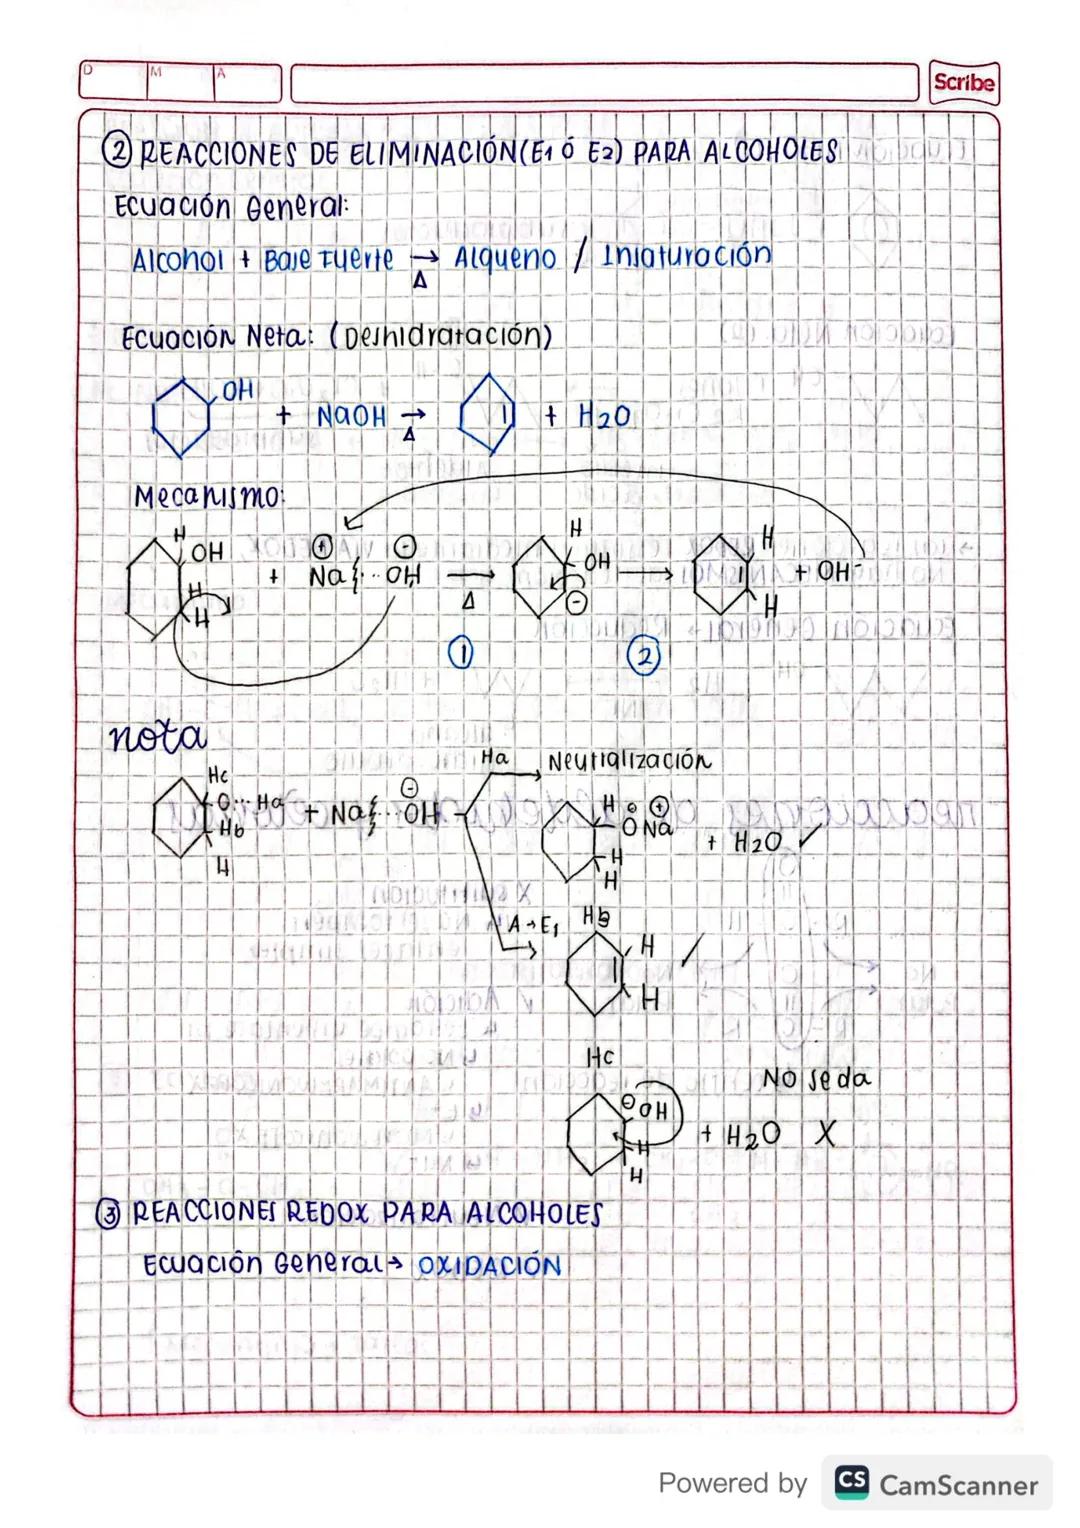 D M A Scribe
② REACCIONES DE ELIMINACIÓN (E1 Ó E2) PARA ALCOHOLES
Ecuación General:
Alcohol + Base Fuerte → Alqueno / Insaturación
Δ
Ecuación Neta: (Deshidratación)
OH
+ NaOH → + H2O
Δ
Mecanismo:
H OH + Na ⊕ OH ⊖ → H OH ⊖ → H + OH-
H H Δ H
① ②
nota
Ha Neutralización
Hc O Ha + Na OH ⊖ H O ⊖ Na ⊕ + H2O ✓
Hb H
H H
A→E1 Hb
H ✓
H
Hc No se da
⊖ OH + H2O X
H
H
③ REACCIONES REDOX PARA ALCOHOLES
Ecuación General → OXIDACIÓN
Powered by CS CamScanner